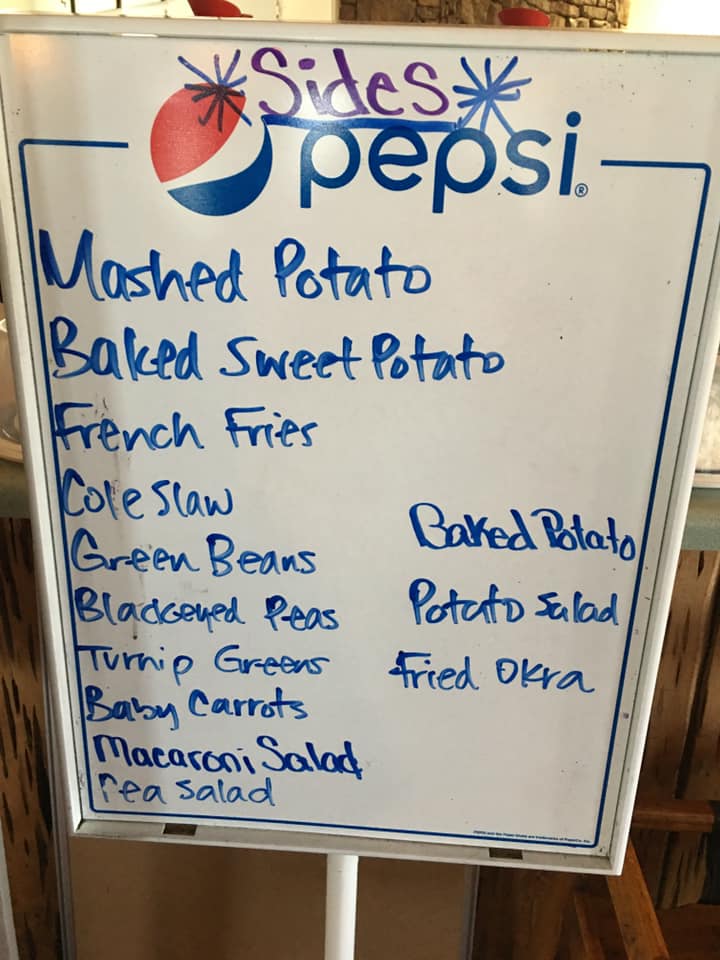 Sides
pepsi®
Mashed Potato
Baked Sweet Potato
French Fries
Cole Slaw
Green Beans
Blackeyed Peas
Turnip Greens
Baby Carrots
Macaroni Salad
Pea Salad
Baked Potato
Potato Salad
Fried Okra